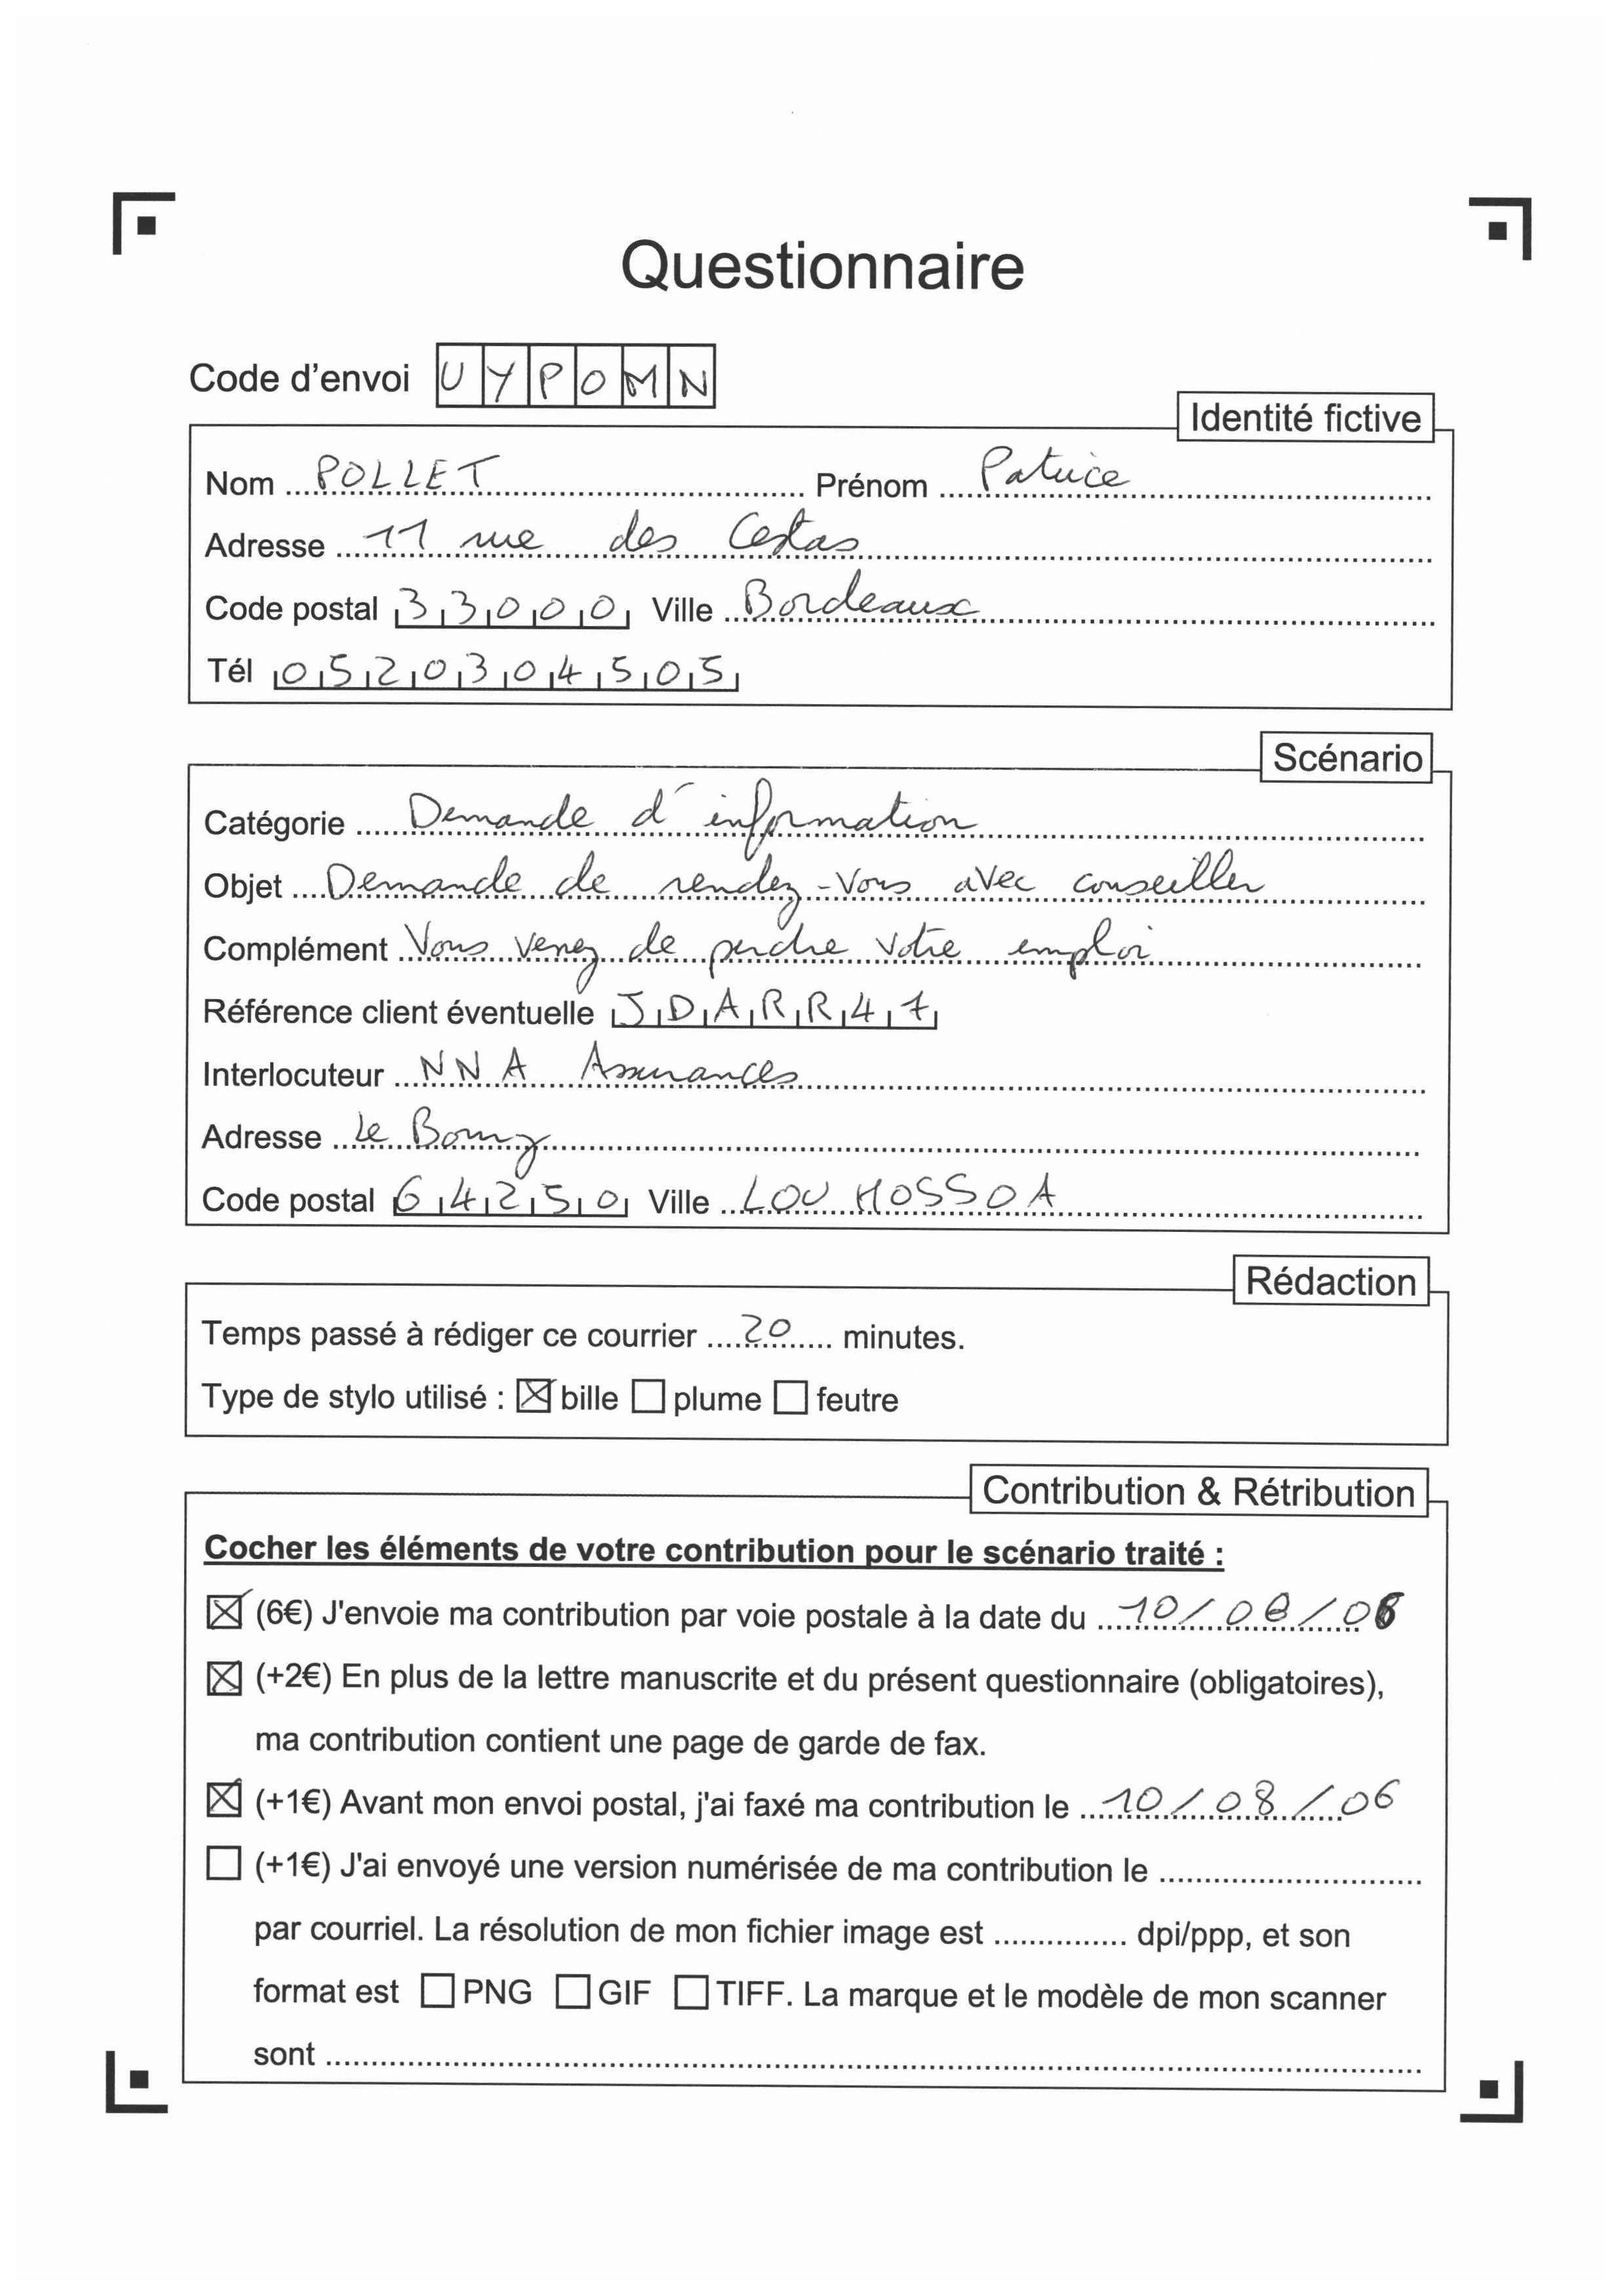 Questionnaire
Code d'envoi UYPOMN
Identité fictive
Nom POLLET Prénom Patrice
Adresse 11 rue des Cestas
Code postal 33000 Ville Bordeaux
Tél 0520304505
Scénario
Catégorie Demande d'information
Objet Demande de rendez-vous avec conseiller
Complément Vous venez de perdre votre emploi
Référence client éventuelle JDARR47
Interlocuteur NNA Assurances
Adresse Le Bourg
Code postal 64250 Ville LOUHOSSOA
Rédaction
Temps passé à rédiger ce courrier 20 minutes.
Type de stylo utilisé : ☒ bille ☐ plume ☐ feutre
Contribution & Rétribution
Cocher les éléments de votre contribution pour le scénario traité :
☒ (6€) J'envoie ma contribution par voie postale à la date du 10/08/06
☒ (+2€) En plus de la lettre manuscrite et du présent questionnaire (obligatoires),
ma contribution contient une page de garde de fax.
☒ (+1€) Avant mon envoi postal, j'ai faxé ma contribution le 10/08/06
☐ (+1€) J'ai envoyé une version numérisée de ma contribution le ..............
par courriel. La résolution de mon fichier image est .............. dpi/ppp, et son
format est ☐ PNG ☐ GIF ☐ TIFF. La marque et le modèle de mon scanner
sont ..............